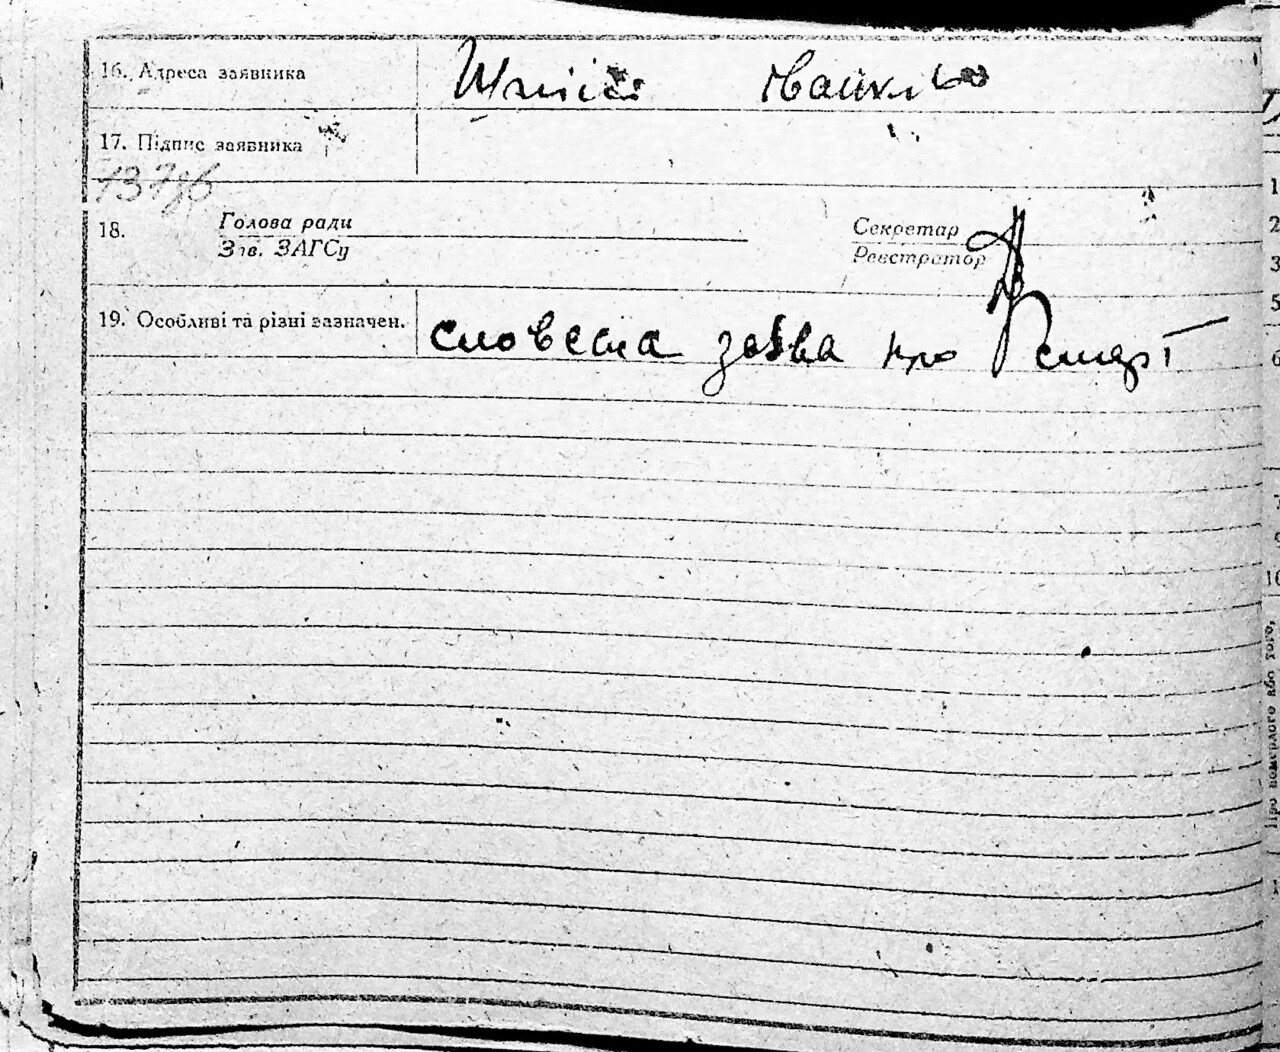 16. Адреса заявника
17. Підпис заявника
18. Голова ради Секретар
Зав. ЗАГСу Реєстратор
19. Особливі та різні зазначен. словесна заява про смерт
Про померлого або того,